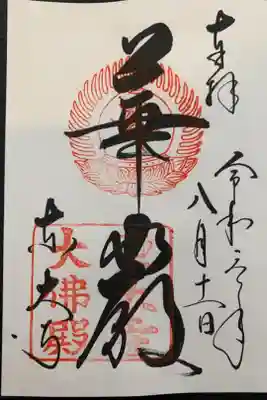 奉拝
令和元年
八月十一日
華嚴
東大寺
大佛殿